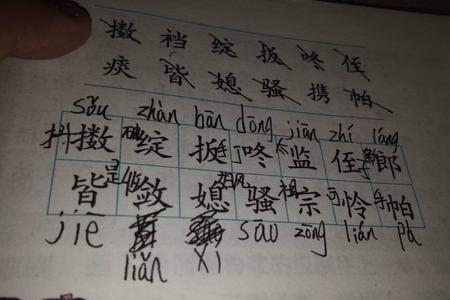 擞 裆 绽 扳 咚 侄
痰 皆 媳 骚 携 帕
sǒu zhàn bān dōng jiān zhí láng
抖擞 绽 扳 咚 监 侄 郎
皆 敛 媳 骚 祖宗 可怜 帕
jiē sāo zōng lián pà
liǎn xí